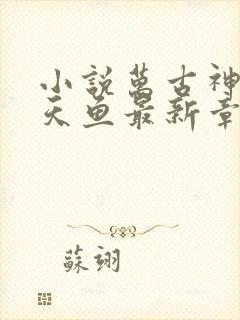 小説萬古神
天魚最新章
蘇翊